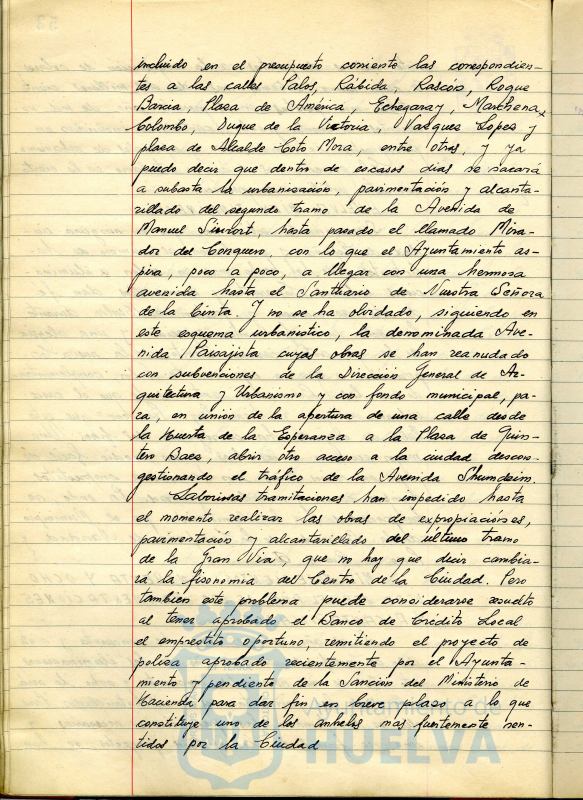 incluido en el presupuesto corriente las correspondien-
tes a las calles Palos, Rábida, Rascón, Roque
Barcia, Plaza de América, Echegaray, Marchena
Colombo, Duque de la Victoria, Vazquez Lopez y
plaza de Alcalde Coto Mora, entre otras, y ya
puedo decir que dentro de escasos dias se sacará
a subasta la urbanización, pavimentación y alcanta-
rillado del segundo tramo de la Avenida de
Manuel Siurot, hasta pasado el llamado Mira-
dor del Conquero, con lo que el Ayuntamiento as-
pira, poco a poco, a llegar con una hermosa
avenida hasta el Santuario de Nuestra Señora
de la Cinta. Y no se ha olvidado, siguiendo en
este esquema urbanistico, la denominada Ave-
nida Paisajista cuyas obras se han reanudado
con subvenciones de la Dirección General de Ar-
quitectura y Urbanismo y con fondo municipal, pa-
ra, en unión de la apertura de una calle desde
la Huerta de la Esperanza a la Plaza de Quin-
tero Baez, abrir otro acceso a la ciudad descon-
gestionando el tráfico de la Avenida Shundeim.
Laboriosas tramitaciones han impedido hasta
el momento realizar las obras de expropiaciones,
pavimentación y alcantarillado del último tramo
de la Gran Via, que no hay que decir cambia-
rá la fisonomia del Centro de la Ciudad. Pero
tambien este problema puede considerarse resuelto
al tener aprobado el Banco de Crédito Local
el emprestito oportuno, remitiendo el proyecto de
poliza aprobado recientemente por el Ayunta-
miento y pendiente de la Sanción del Ministerio de
Hacienda para dar fin en breve plazo a lo que
constituye uno de los anhelos mas fuertemente sen-
tidos por la Ciudad
Ayuntamiento de
HUELVA